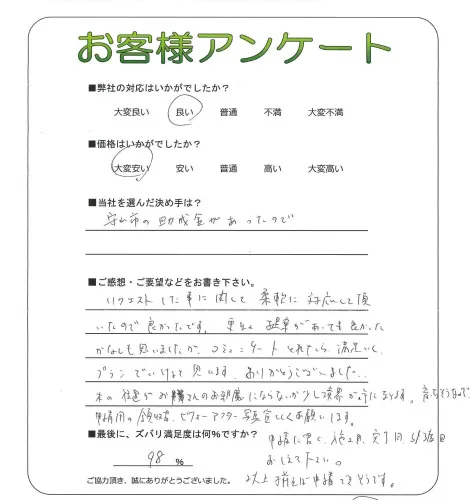 お客様アンケート
■弊社の対応はいかがでしたか？
大変良い 良い 普通 不満 大変不満
■価格はいかがでしたか？
大変安い 安い 普通 高い 大変高い
■当社を選んだ決め手は？
守山市の助成金があったので
■ご感想・ご要望などをお書き下さい。
リクエストした事に関して柔軟に対応して頂
いたので良かったです。更に提案があっても良かった
かなとも思いましたが、コミュニケートとれたら満足いく
プランでいけると思います。ありがとうございました。
木の お隣さんのお邪魔にならないか少し境界が気になります。
申請用の領収書、ビフォーアフター写真宜しくお願いします。
■最後に、ズバリ満足度は何％ですか？
98 %
申請に書く、着工日、完了日
おしえて下さい。
以上揃えば申請できそうです。
ご協力頂き、誠にありがとうございました。